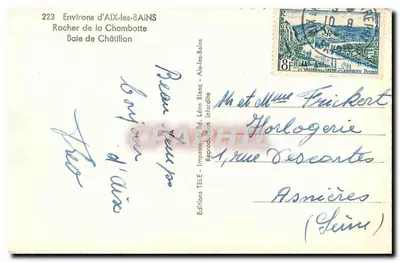 223 Environs d'AIX-les-BAINS
Rocher de la Chambotte
Baie de Châtillon
8F
Beau temps
bonjour
d'aix
Léo
Editions TELE - Impresse, Ed. Léon Blanc - Aix-les-Bains
Reproduction interdite
Mr et Mme Frickert
Horlogerie
1, rue Descartes
Asnières
(Seine)